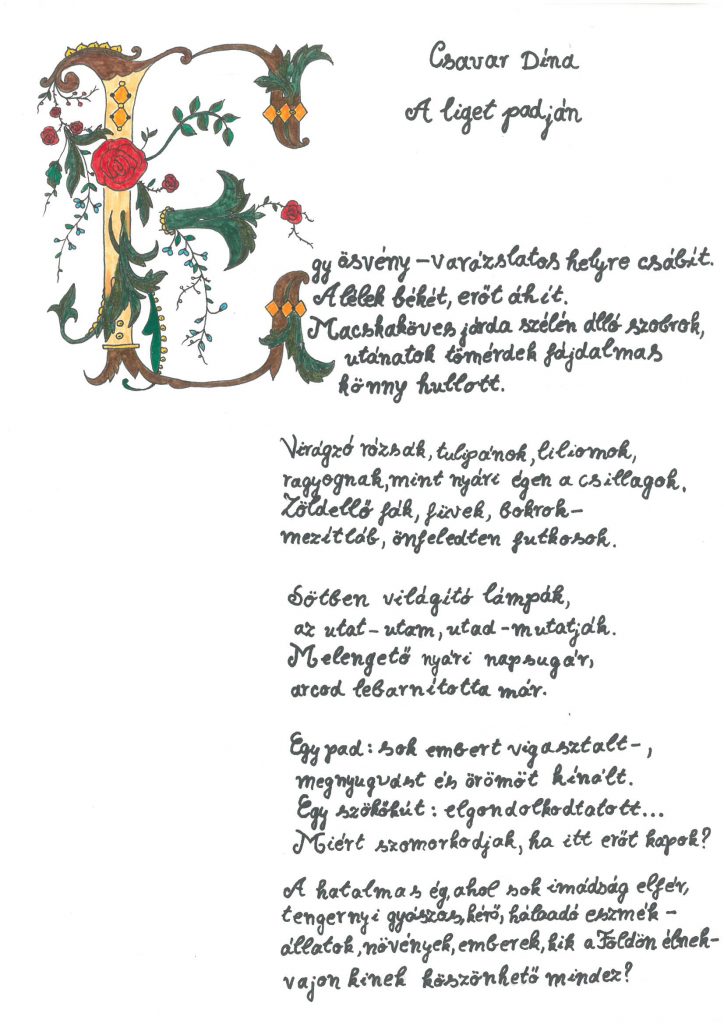 Csavar Dína
A liget padján
Egy ösvény – varázslatos helyre csábít.
A lélek békét, erőt áhít.
Macskaköves járda szélén álló szobrok,
utánatok tömérdek fájdalmas
könny hullott.
Virágzó rózsák, tulipánok, liliomok,
ragyognak, mint nyári égen a csillagok.
Zöldellő fák, füvek, bokrok–
mezítláb, önfeledten futkosok.
Sötben világító lámpák,
az utat – utam, utad – mutatják.
Melengető nyári napsugár,
arcod lebarnította már.
Egy pad: sok embert vigasztalt–,
megnyugvást és örömöt kínált.
Egy szökőkút: elgondolkodtatott...
Miért szomorkodjak, ha itt erőt kapok?
A hatalmas ég, ahol sok imádság elfér,
tengernyi gyászos, kérő, hálaadó eszmék –
állatok, növények, emberek, kik a Földön élnek–
vajon kinek köszönhető mindez?